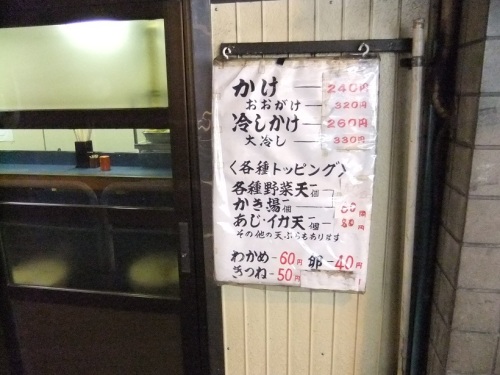 かけ 240円
おおがけ 320円
冷しかけ 260円
大冷し 330円
〈各種トッピング〉
各種野菜天一個
かき揚一個
あじ・イカ天一個 80円
その他の天ぷらもあります
わかめ-60円 卵-40円
きつね-50円